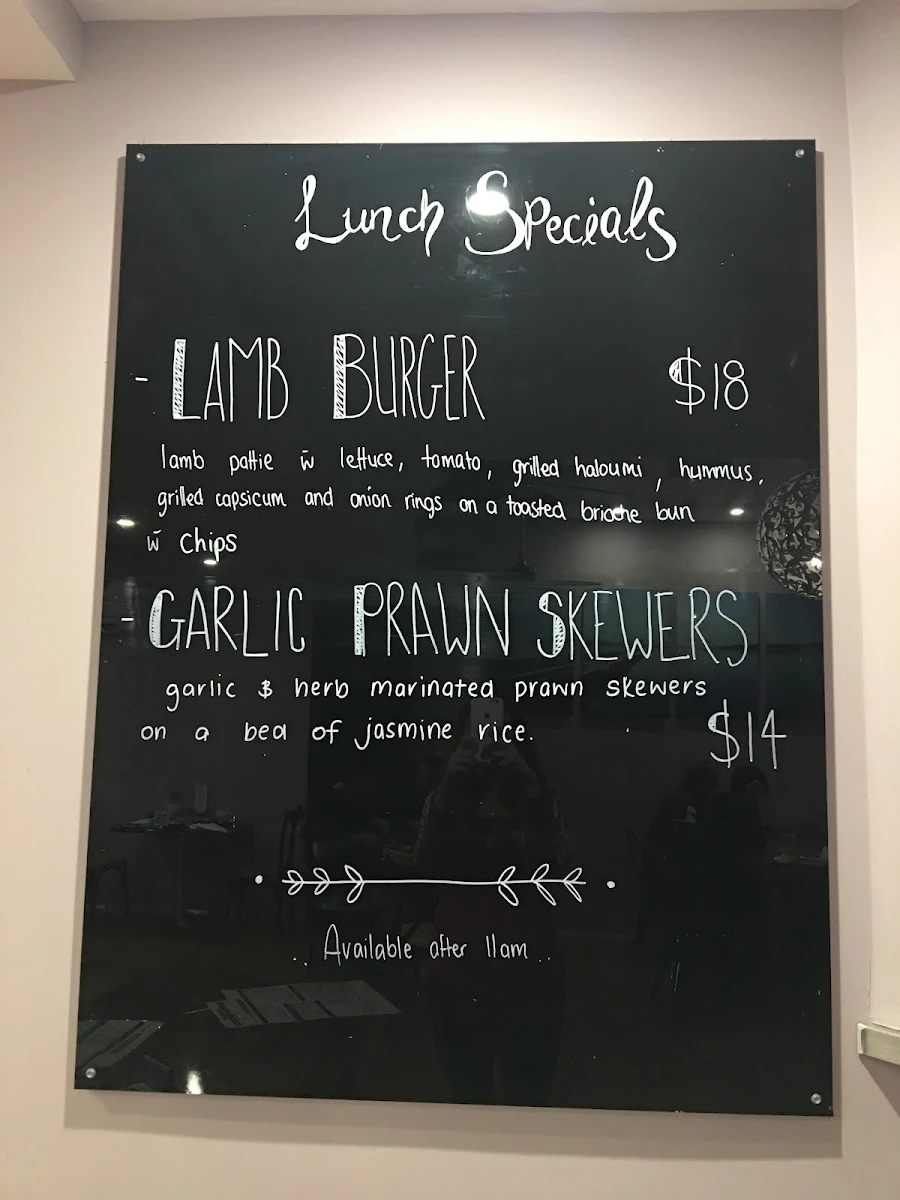 Lunch Specials
- LAMB BURGER $18
lamb pattie w̄ lettuce, tomato, grilled haloumi, hummus,
grilled capsicum and onion rings on a toasted brioche bun
w̄ chips
- GARLIC PRAWN SKEWERS
garlic & herb marinated prawn skewers
on a bed of jasmine rice.
$14
.. Available after 11am ..